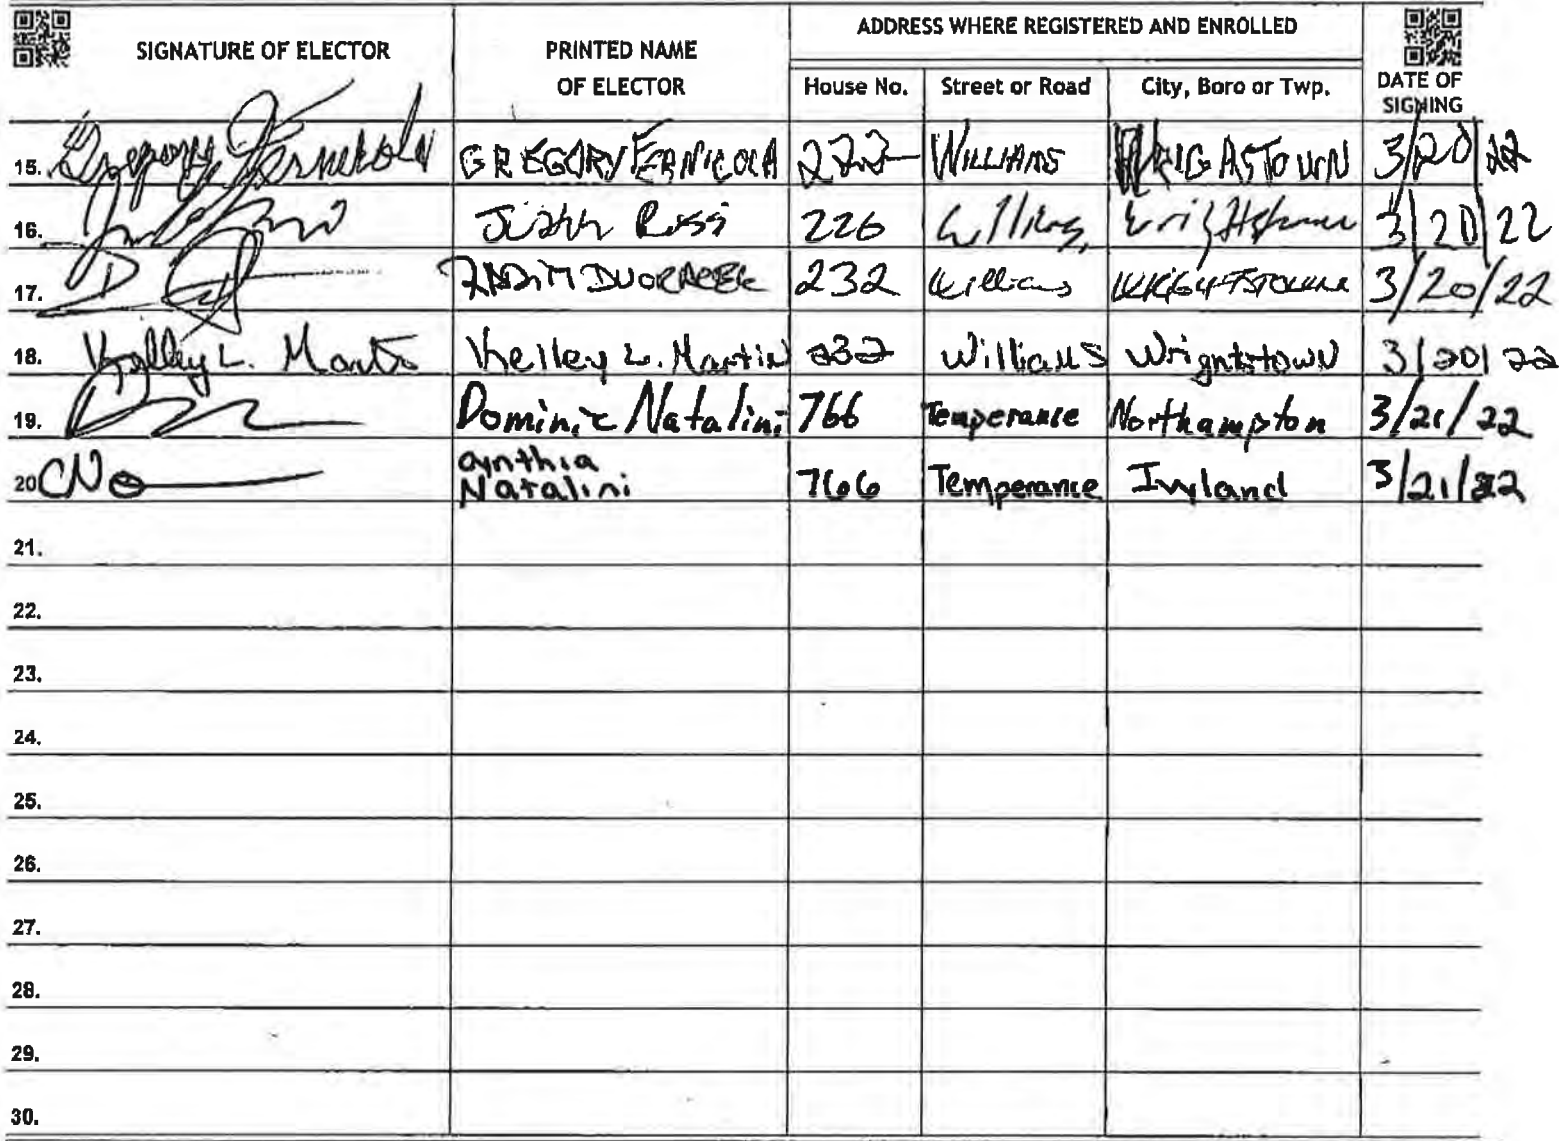 SIGNATURE OF ELECTOR
PRINTED NAME
OF ELECTOR
ADDRESS WHERE REGISTERED AND ENROLLED
House No.
Street or Road
City, Boro or Twp.
DATE OF
SIGNING
15. GREGORY FERNICOLA 222 WILLIAMS 3/20/22
16. Rossi 226 Williams 3/20/22
17. 232 Williams WRIGHTSTOWN 3/20/22
18. Kelley L. Martin Kelley L. Martin 232 Williams Wrightstown 3/20/22
19. Dominic Natalini 766 Temperance Northampton 3/21/22
20 Cynthia
Natalini 766 Temperance Ivyland 3/21/22
21.
22.
23.
24.
25.
26.
27.
28.
29.
30.